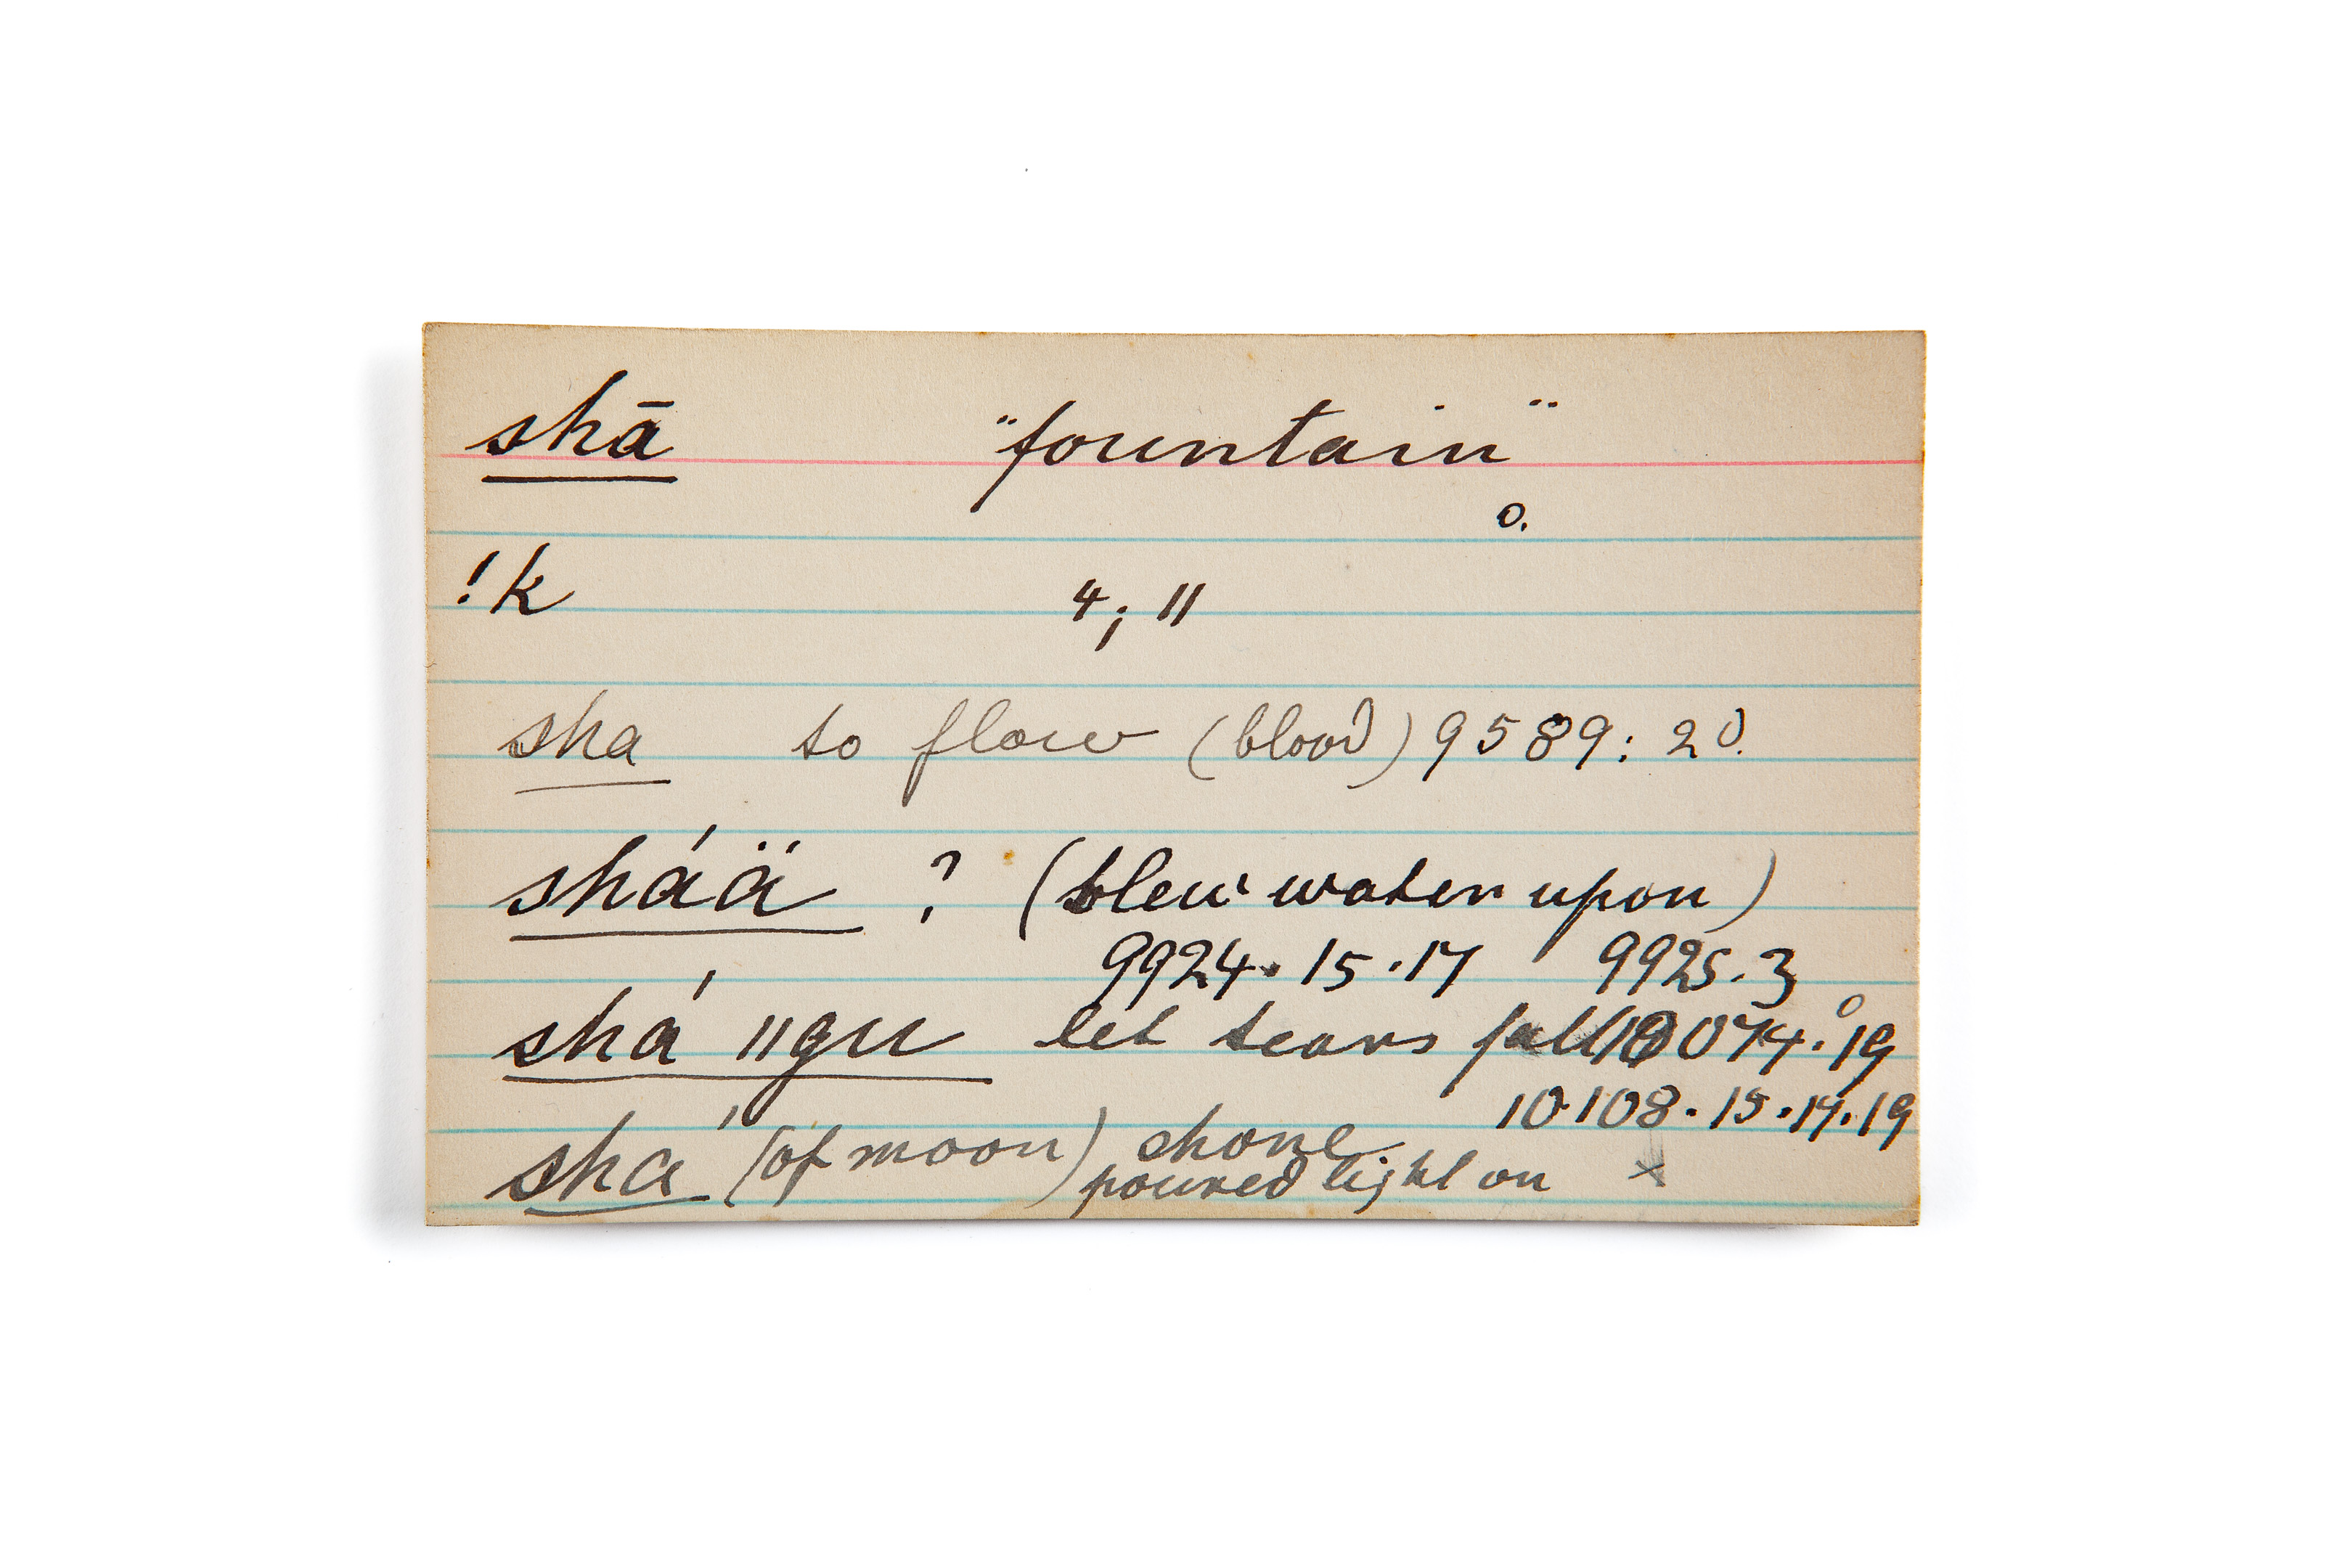 shā "fountain"
o.
!k 4; 11
sha to flow (blood) 9589: 20.
sháä ? (blew water upon)
9924. 15.17 9925.3
shá ǁgu let tears fall 10074.19
10.108.15.17.19
shá (of moon) shone
poured light on x